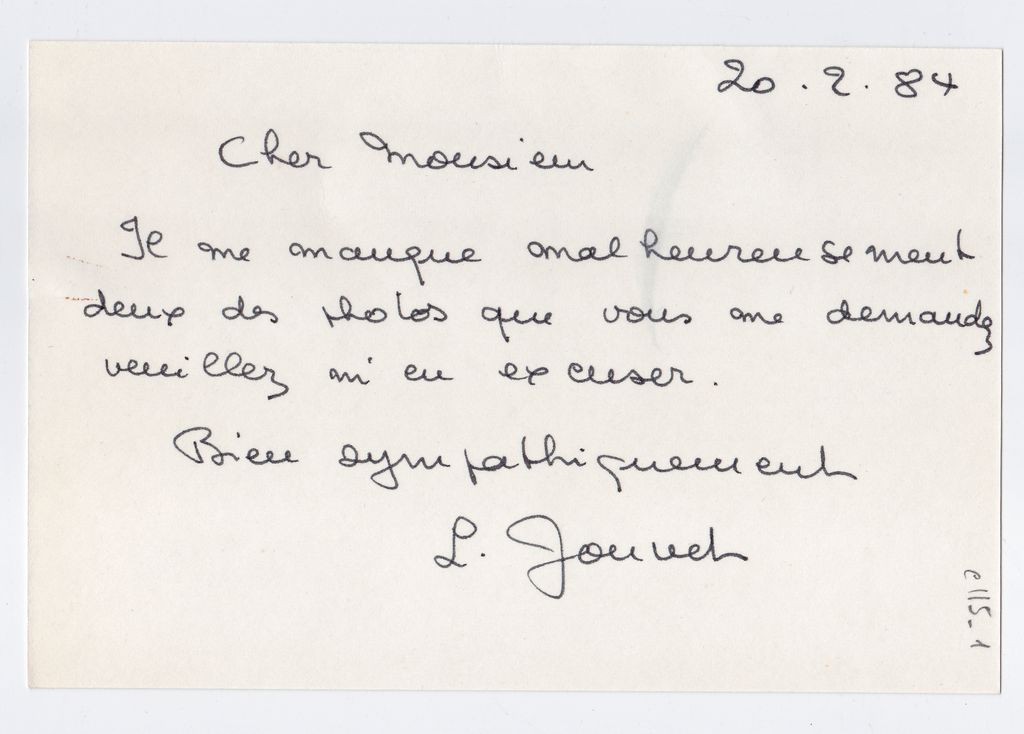 20.2.84
Cher Monsieur
Il me manque malheureusement
deux des photos que vous me demandez
veuillez m'en excuser.
Bien sympathiquement
L. Jouvet
e115_1